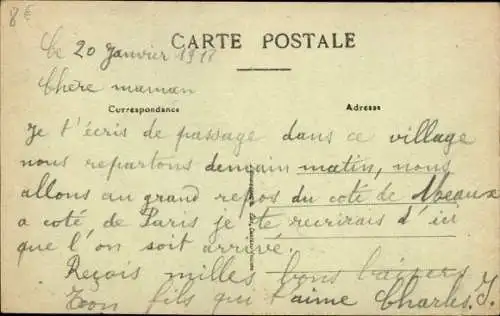 8€
CARTE POSTALE
Le 20 Janvier 1918
Chère maman
Correspondance
Adresse
Je t'écris de passage dans ce village
nous repartons demain matin, nous
allons au grand repos du coté de Meaux
a coté de Paris je te recrirais d'ici
que l'on soit arrivé.
Reçois milles bons baisers
Ton fils qui t'aime Charles. J.